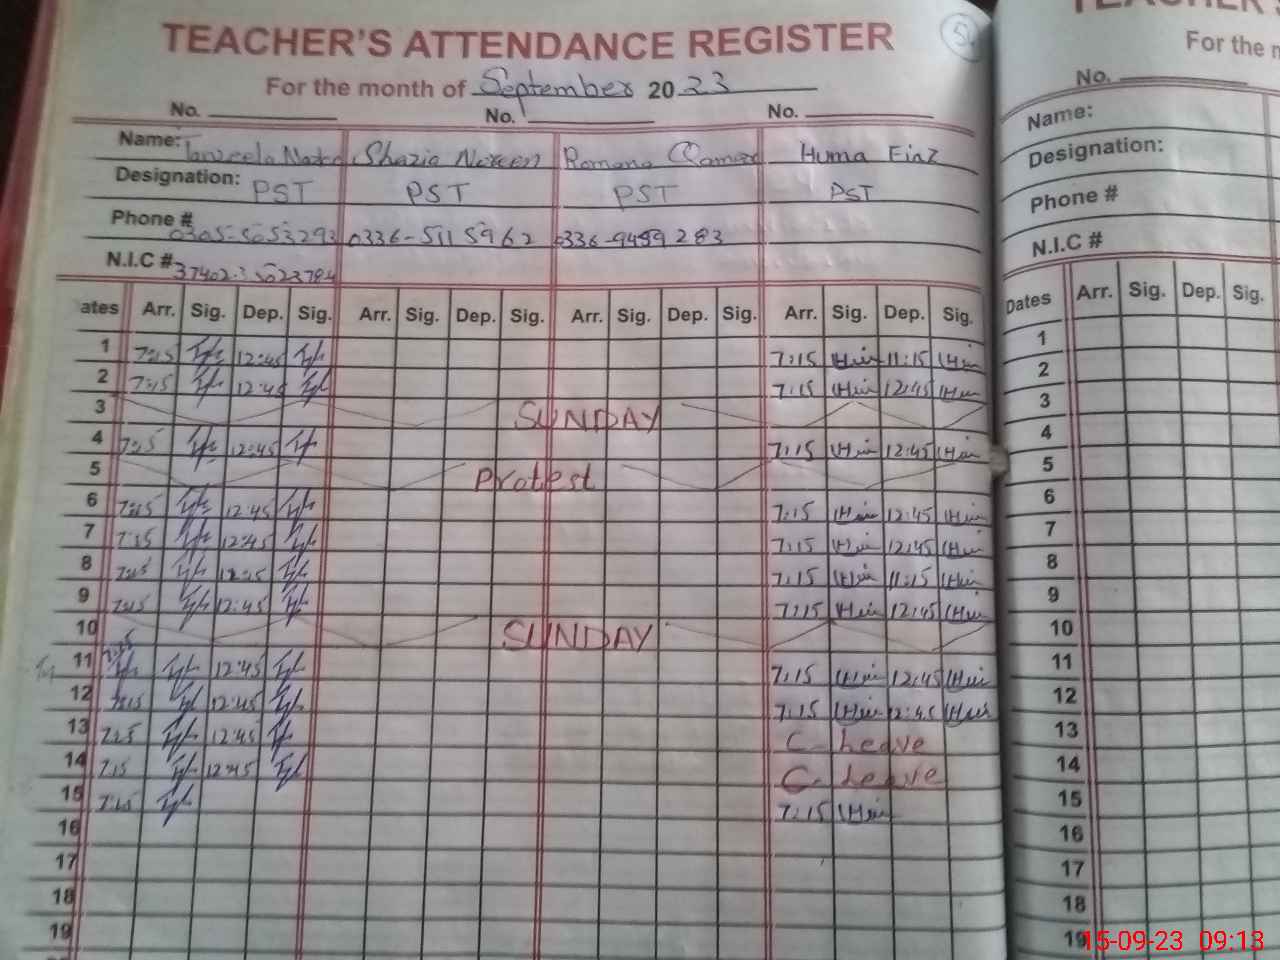 TEACHER'S ATTENDANCE REGISTER
For the month of September 2023
No. No. No.
Name: Shazia Noreen Romana Qamar Huma Eiaz
Designation: PST PST PST PST
Phone # 0305-5053293 0336-5115962 0336-9459283
N.I.C #
ates Arr. Sig. Dep. Sig. Arr. Sig. Dep. Sig. Arr. Sig. Dep. Sig. Arr. Sig. Dep. Sig.
1 7:15 12:45 7:15 11:15
2 7:15 12:45 7:15 12:45
3 SUNDAY
4 7:15 12:45 7:15 12:45
5 Protest
6 7:15 12:45 7:15 12:45
7 7:15 12:45 7:15 12:45
8 7:15 7:15 11:15
9 7:15 12:45 7:15 12:45
10 SUNDAY
11 12:45 7:15 12:45
12 7:15 12:45 7:15 12:45
13 7:15 12:45 C- Leave
14 7:15 12:45 C- Leave
15 7:15 7:15
16
17
18
19
For the m
No.
Name:
Designation:
Phone #
N.I.C #
Dates Arr. Sig. Dep. Sig.
1
2
3
4
5
6
7
8
9
10
11
12
13
14
15
16
17
18
19
15-09-23 09:13